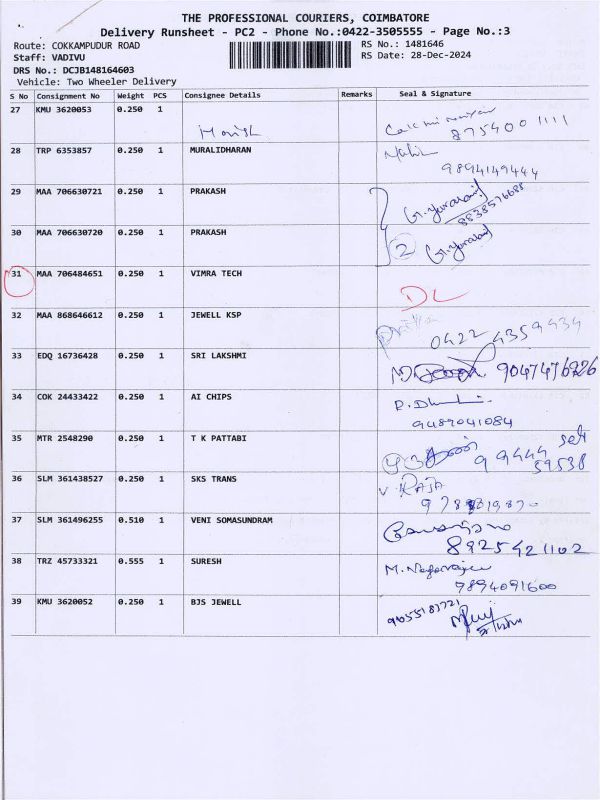 THE PROFESSIONAL COURIERS, COIMBATORE
Delivery Runsheet - PC2 - Phone No.:0422-3505555 - Page No.:3
Route: COKKAMPUDUR ROAD RS No.: 1481646
Staff: VADIVU RS Date: 28-Dec-2024
DRS No.: DCJB148164603
Vehicle: Two Wheeler Delivery
S No Consignment No Weight PCS Consignee Details Remarks Seal & Signature
27 KMU 3620053 0.250 1
Harish
875400 1111
28 TRP 6353857 0.250 1 MURALIDHARAN
9894149444
29 MAA 706630721 0.250 1 PRAKASH
8838576688
30 MAA 706630720 0.250 1 PRAKASH
2
31 MAA 706484651 0.250 1 VIMRA TECH
DL
32 MAA 868646612 0.250 1 JEWELL KSP
0422 4359434
33 EDQ 16736428 0.250 1 SRI LAKSHMI
34 COK 24433422 0.250 1 AI CHIPS
9489041084
35 MTR 2548290 0.250 1 T K PATTABI
99444
59538
36 SLM 361438527 0.250 1 SKS TRANS
V. RAJA
37 SLM 361496255 0.510 1 VENI SOMASUNDRAM
8925421102
38 TRZ 45733321 0.555 1 SURESH
M. Nagarajan
9894091600
39 KMU 3620052 0.250 1 BJS JEWELL